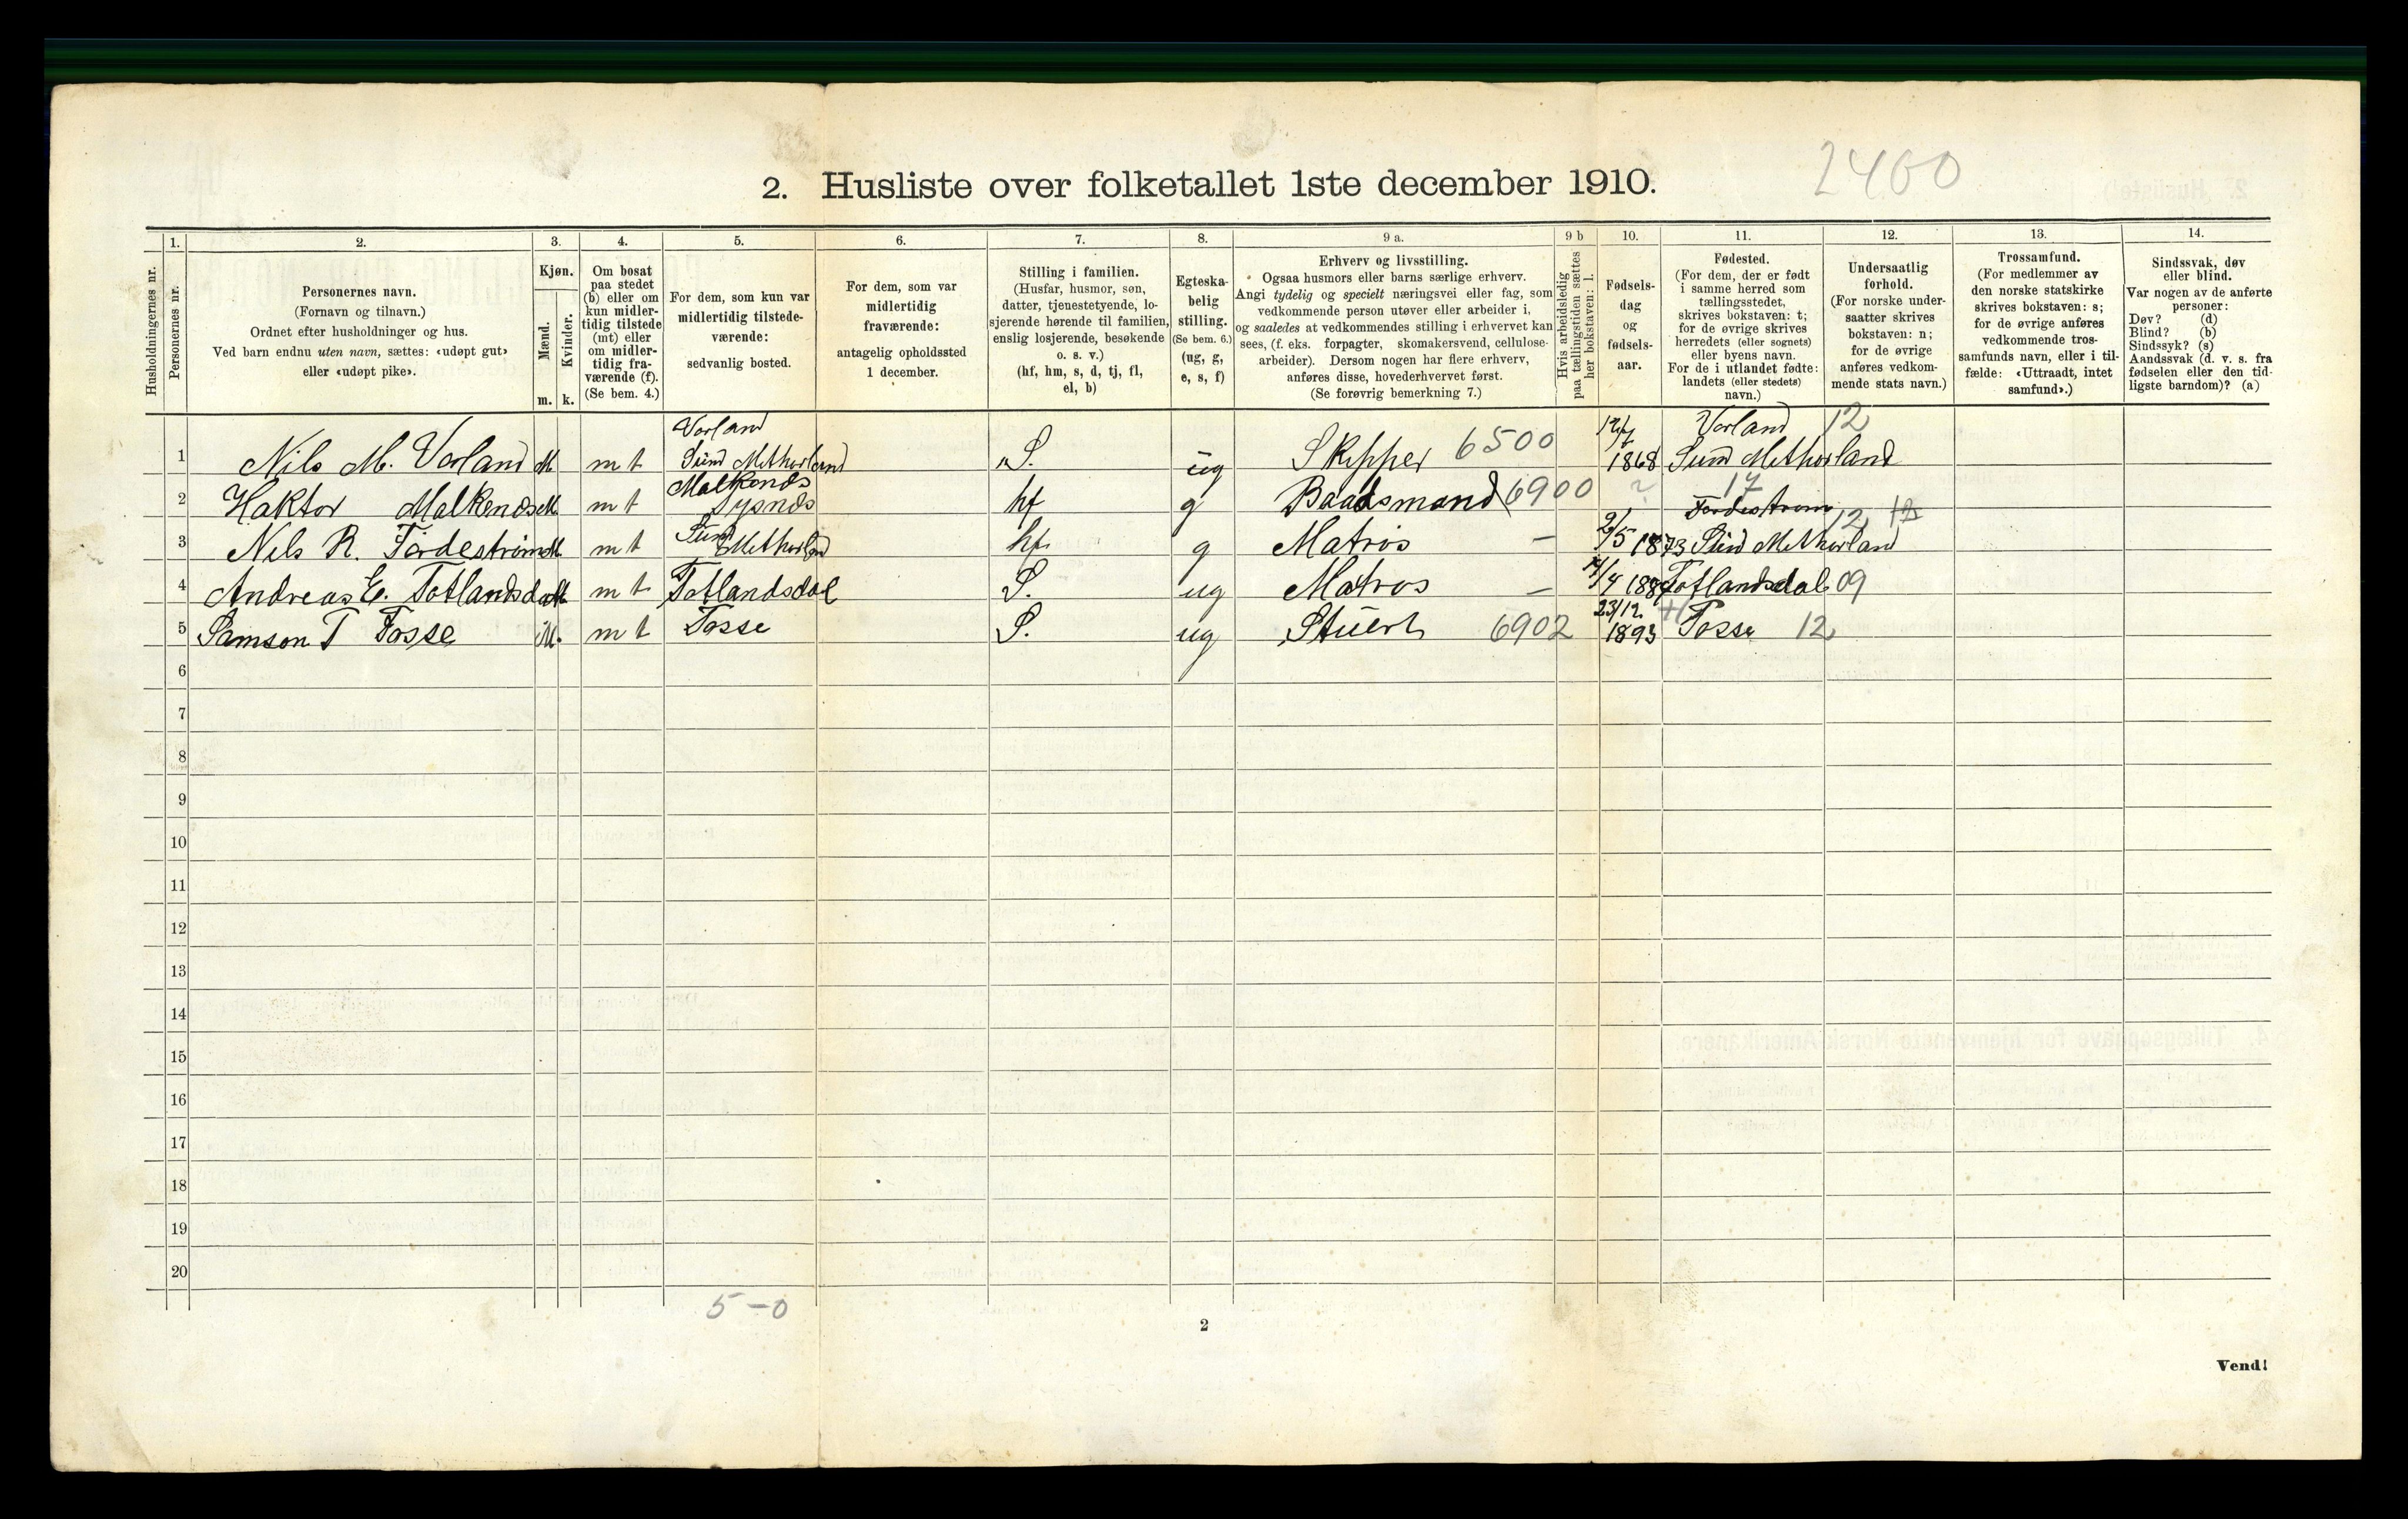 2. Husliste over folketallet 1ste december 1910.
2400
1. 2. 3. 4. 5. 6. 7. 8. 9 a. 9 b 10. 11. 12. 13. 14.
Husholdningernes nr.
Personernes nr.
Personernes navn.
(Fornavn og tilnavn.)
Ordnet efter husholdninger og hus.
Ved barn endnu uten navn, sættes: «udøpt gut»
eller «udøpt pike».
Kjøn.
Mænd.
Kvinder.
m. k.
Om bosat
paa stedet
(b) eller om
kun midler-
tidig tilstede
(mt) eller
om midler-
tidig fra-
værende (f).
(Se bem. 4.)
For dem, som kun var
midlertidig tilstede-
værende:
sedvanlig bosted.
For dem, som var
midlertidig
fraværende:
antagelig opholdssted
1 december.
Stilling i familien.
(Husfar, husmor, søn,
datter, tjenestetyende, lo-
sjerende hørende til familien,
enslig losjerende, besøkende
o. s. v.)
(hf, hm, s, d, tj, fl,
el, b)
Egteska-
belig
stilling.
(Se bem. 6.)
(ug, g,
e, s, f)
Erhverv og livsstilling.
Ogsaa husmors eller barns særlige erhverv.
Angi tydelig og specielt næringsvei eller fag, som
vedkommende person utøver eller arbeider i,
og saaledes at vedkommendes stilling i erhvervet kan
sees, (f. eks. forpagter, skomakersvend, cellulose-
arbeider). Dersom nogen har flere erhverv,
anføres disse, hovederhvervet først.
(Se forøvrig bemerkning 7.)
Hvis arbeidsledig
paa tællingstiden sættes
her bokstaven: l.
Fødsels-
dag
og
fødsels-
aar.
Fødested.
(For dem, der er født
i samme herred som
tællingsstedet,
skrives bokstaven: t;
for de øvrige skrives
herredets (eller sognets)
eller byens navn.
For de i utlandet fødte:
landets (eller stedets)
navn.)
Undersaatlig
forhold.
(For norske under-
saatter skrives
bokstaven: n;
for de øvrige
anføres vedkom-
mende stats navn.)
Trossamfund.
(For medlemmer av
den norske statskirke
skrives bokstaven: s;
for de øvrige anføres
vedkommende tros-
samfunds navn, eller i til-
fælde: «Uttraadt, intet
samfund».)
Sindssvak, døv
eller blind.
Var nogen av de anførte
personer:
Døv? (d)
Blind? (b)
Sindssyk? (s)
Aandssvak (d. v. s. fra
fødselen eller den tid-
ligste barndom)? (a)
Vorland Vorland 12
1 Nils M. Vorland M m t Sund Methorland S. ug Skipper 6500 1868 Sund Methorland
Malkends 17
2 Haktor Malkends M m t Sysnds hf g Baadsmand 6900 ?
Sund Fordestrøm 12
3 Nils R. Fördeström M m t Methorland hf. g Matros — 2/5 1873 Sund Methorland
4 Andreas E. Totlandsdal M m t Totlandsdal S. ug Matros — Totlandsdal 09
23/12
5 Samson T Fosse M. m t Fosse S. ug Stuert 6902 1893 Fosse 12
6
7
8
9
10
11
12
13
14
15
16
17
18
19
20
5 – 0
2
Vend!